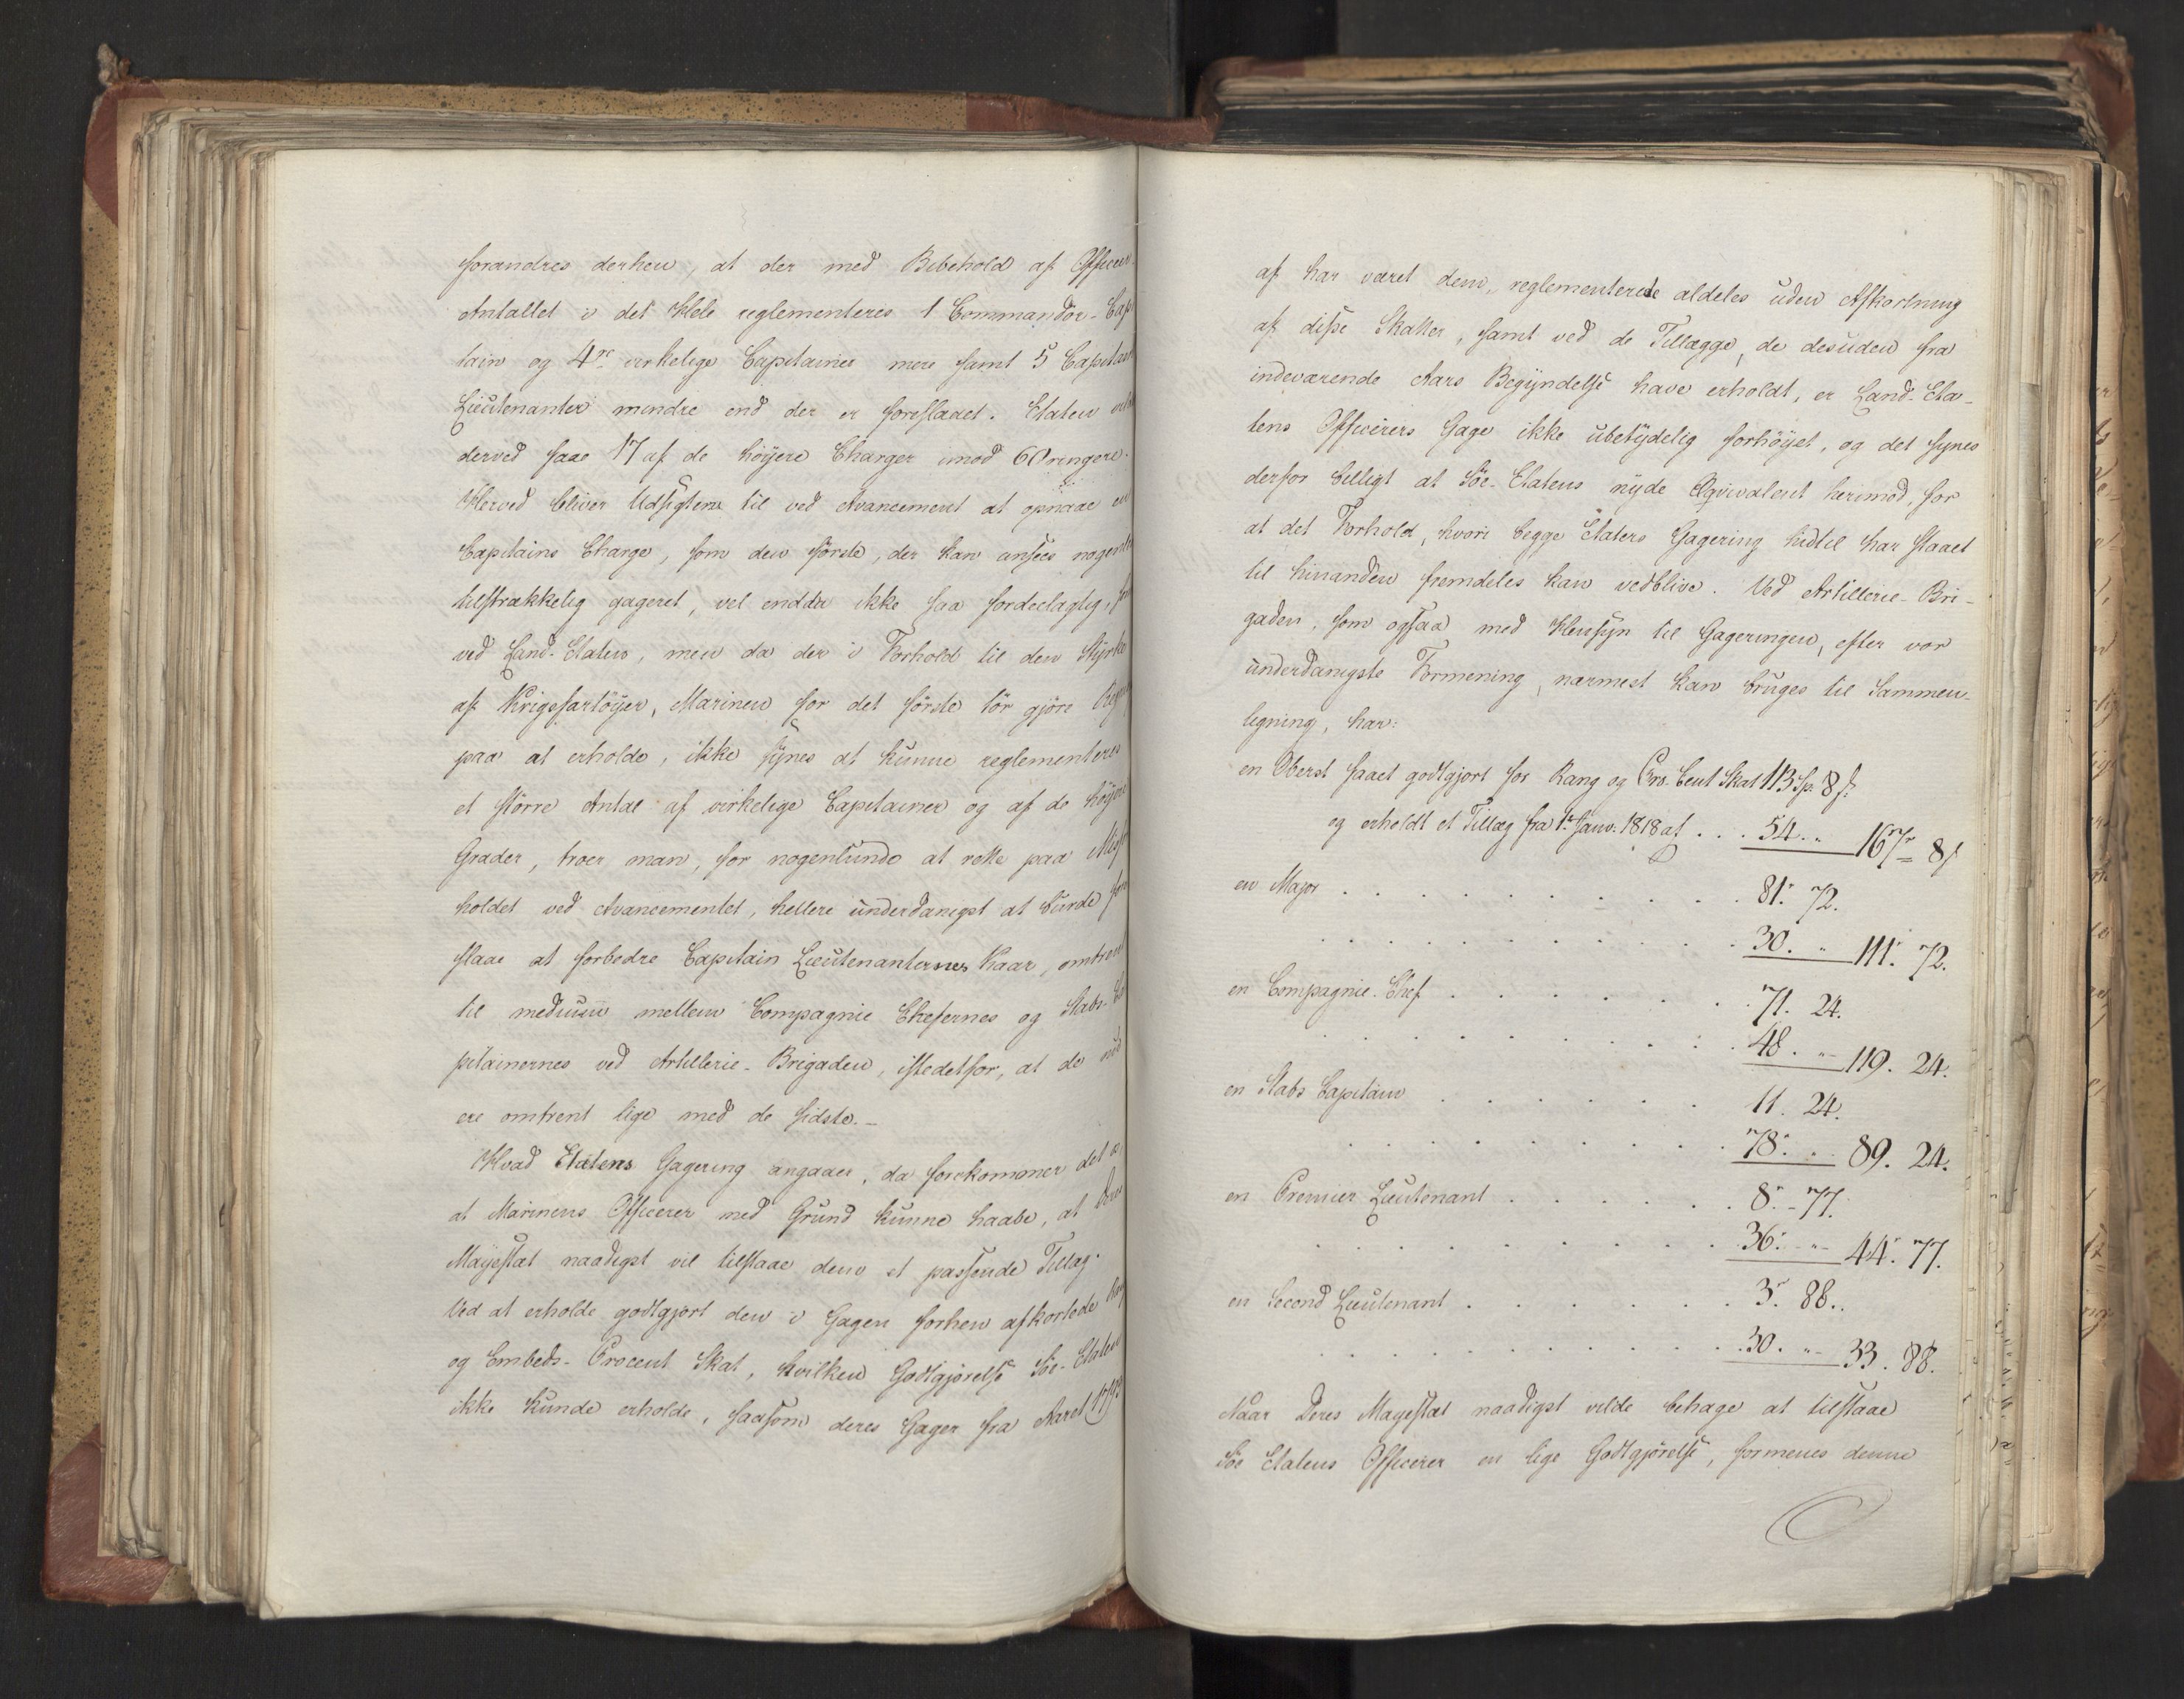 forandres derhen, at der med Bibehold af Officeer
Antallet i det Hele reglementeres 1 Commandör-Cap
tain og 4re virkelige Capitainer mere samt 5 Capitain
Lieutenanter mindre end der er foreslaaet. Etaten
derved faae 17 af de höyere Charger imod 60 ringere.
Herved bliver Udsigten til ved Avancement at opnaae en
Capitains Charge, som den förste, der kan ansees nogenl
tilstrækkelig gageret, vel endda ikke saa fordeelagtig,
ved Land-Etaten, men da der i Forhold til den Styrke
af Krigsfartöyer, Marinen for det förste tör gjöre
paa at erholde, ikke synes at kunne reglementeres
et större Antal af virkelige Capitainer og af de höyere
Grader, troer man, for nogenlunde at rette paa Misf
holdet ved Avancementet, hellere underdanigst at burde fore
slaae at forbedre Capitain Lieutenanternes Kaar, omtrent
til medium mellem Compagnie Chefernes og Stabs-Ca
pitainernes ved Artillerie-Brigaden, istedetfor, at de nu
ere omtrent lige med de sidste.-
Hvad Etatens Gagering angaaer, da forekommer det os,
at Marinens Officerer med Grund kunne haabe, at Deres
Mayestæt naadigst vil tilstaae dem et passende Tillæg.
Ved at erholde godtgjort den i Gagen forhen afkortede Rang
og Embeds-Procent Skat, hvilken Godtgjörelse Söe-Etaten
ikke kunde erholde, saasom deres Gager fra Aaret
af har været dem reglementerede aldeles uden Afkortning
af disse Skatter, samt ved de Tillægge, de desuden fra
indeværende Aars Begyndelse have erholdt, er Land-Eta-
tens Officerers Gage ikke ubetydelig forhöyet, og det synes
derfor billigt at Söe-Etatens nyde Æqvivalent herimod, for
at det Forhold, hvori begge Etaters Gagering hidtil har staaet
til hinanden fremdeles kan vedblive. Ved Artillerie-Bri-
gaden, som ogsaa med Hensyn til Gageringen, efter vor
underdanigste Formening, nærmest kan bruges til Sammen-
ligning, har:
en Oberst faaet godtgjort for Rang og Pro-Cent Skat 113 Sp. 8 s.
og erholdt et Tillæg fra 1r Janv: 1818 af . . . 54 .. 167 " 8 s
en Major . . . . . . . . . 81. 72.
. . . . . . . . . . . 30. " 111. 72.
en Compagnie-Chef . . . . . . . 71. 24.
. . . . . . . . . . 48. " 119. 24.
en Stabs Capitain . . . . . . 11. 24.
. . . . . . . . . . 78. " 89. 24.
en Premier Lieutenant . . . . . . 8. 77.
. . . . . . . . . . . 36. " 44. 77.
en Second Lieutenant . . . . . . . 3. 88.
. . . . . . . . . . . 30. " 33. 88.
Naar Deres Mayestæt naadigst vilde behage at tilstaae
Söe Etatens Officerer en lige Godtgjörelse, formenes denne